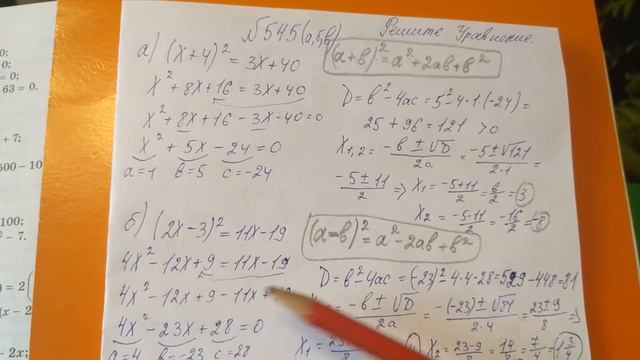 №545(а,б,в) Решите уравнение.
а) (x+4)² = 3x+40
(a+b)² = a²+2ab+b²
x² + 8x+16 = 3x+40
x² + 8x+16 -3x-40=0
x² + 5x -24 = 0
a=1 b=5 c=-24
D=b²-4ac=5²-4·1·(-24)=
25 + 96 = 121 >0
x₁,₂ = -b ± √D / 2a = -5±√121 / 2·1 =
-5±11 / 2 => x₁ = -5+11 / 2 = 6/2 = 3
x₂ = -5-11 / 2 = -16/2 = -8
б) (2x-3)² = 11x-19
(a-b)² = a²-2ab+b²
4x² -12x+9 = 11x-19
4x² -12x+9 -11x+
4x² -23x+28 = 0
a=4 b=-23 c=28
D=b²-4ac=(-23)²-4·4·28=529-448=81
-b ± √D / 2a = -(-23)±√81 / 2·4 = 23±9 / 8 =>
x₁ =
x₂ = 23-9 / 8 = 14/8 = 7
63.
+ 7;
500 – 10
100;
² – 7.
) = 2
(x – 2
– 2x;